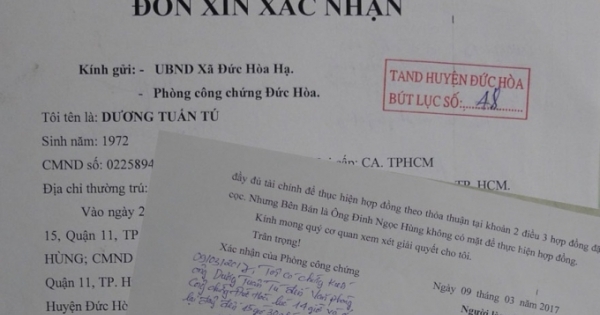 ĐƠN XIN XÁC NHẬN
Kính gửi: - UBND Xã Đức Hòa Hạ.
- Phòng công chứng Đức Hòa.
TAND HUYỆN ĐỨC HÒA
BÚT LỤC SỐ: 48
Tôi tên là: DƯƠNG TUẤN TÚ
Sinh năm: 1972
CMND số: 0225894
cấp: CA. TPHCM
Địa chỉ thường trú:
TP. HCM.
Vào ngày 2
15, Quận 11, TP
HÙNG; CMND
Quận 11, TP. H
Huyện Đức Hò
đầy đủ tài chính để thực hiện hợp đồng theo thỏa thuận tại khoản 2 điều 3 hợp đồng đặ
cọc. Nhưng Bên Bán là Ông Đinh Ngọc Hùng không có mặt để thực hiện hợp đồng.
Kính mong quý cơ quan xem xét giải quyết cho tôi.
Trân trọng!
Xác nhận của Phòng công chứng
Ngày 09 tháng 03 năm 2017